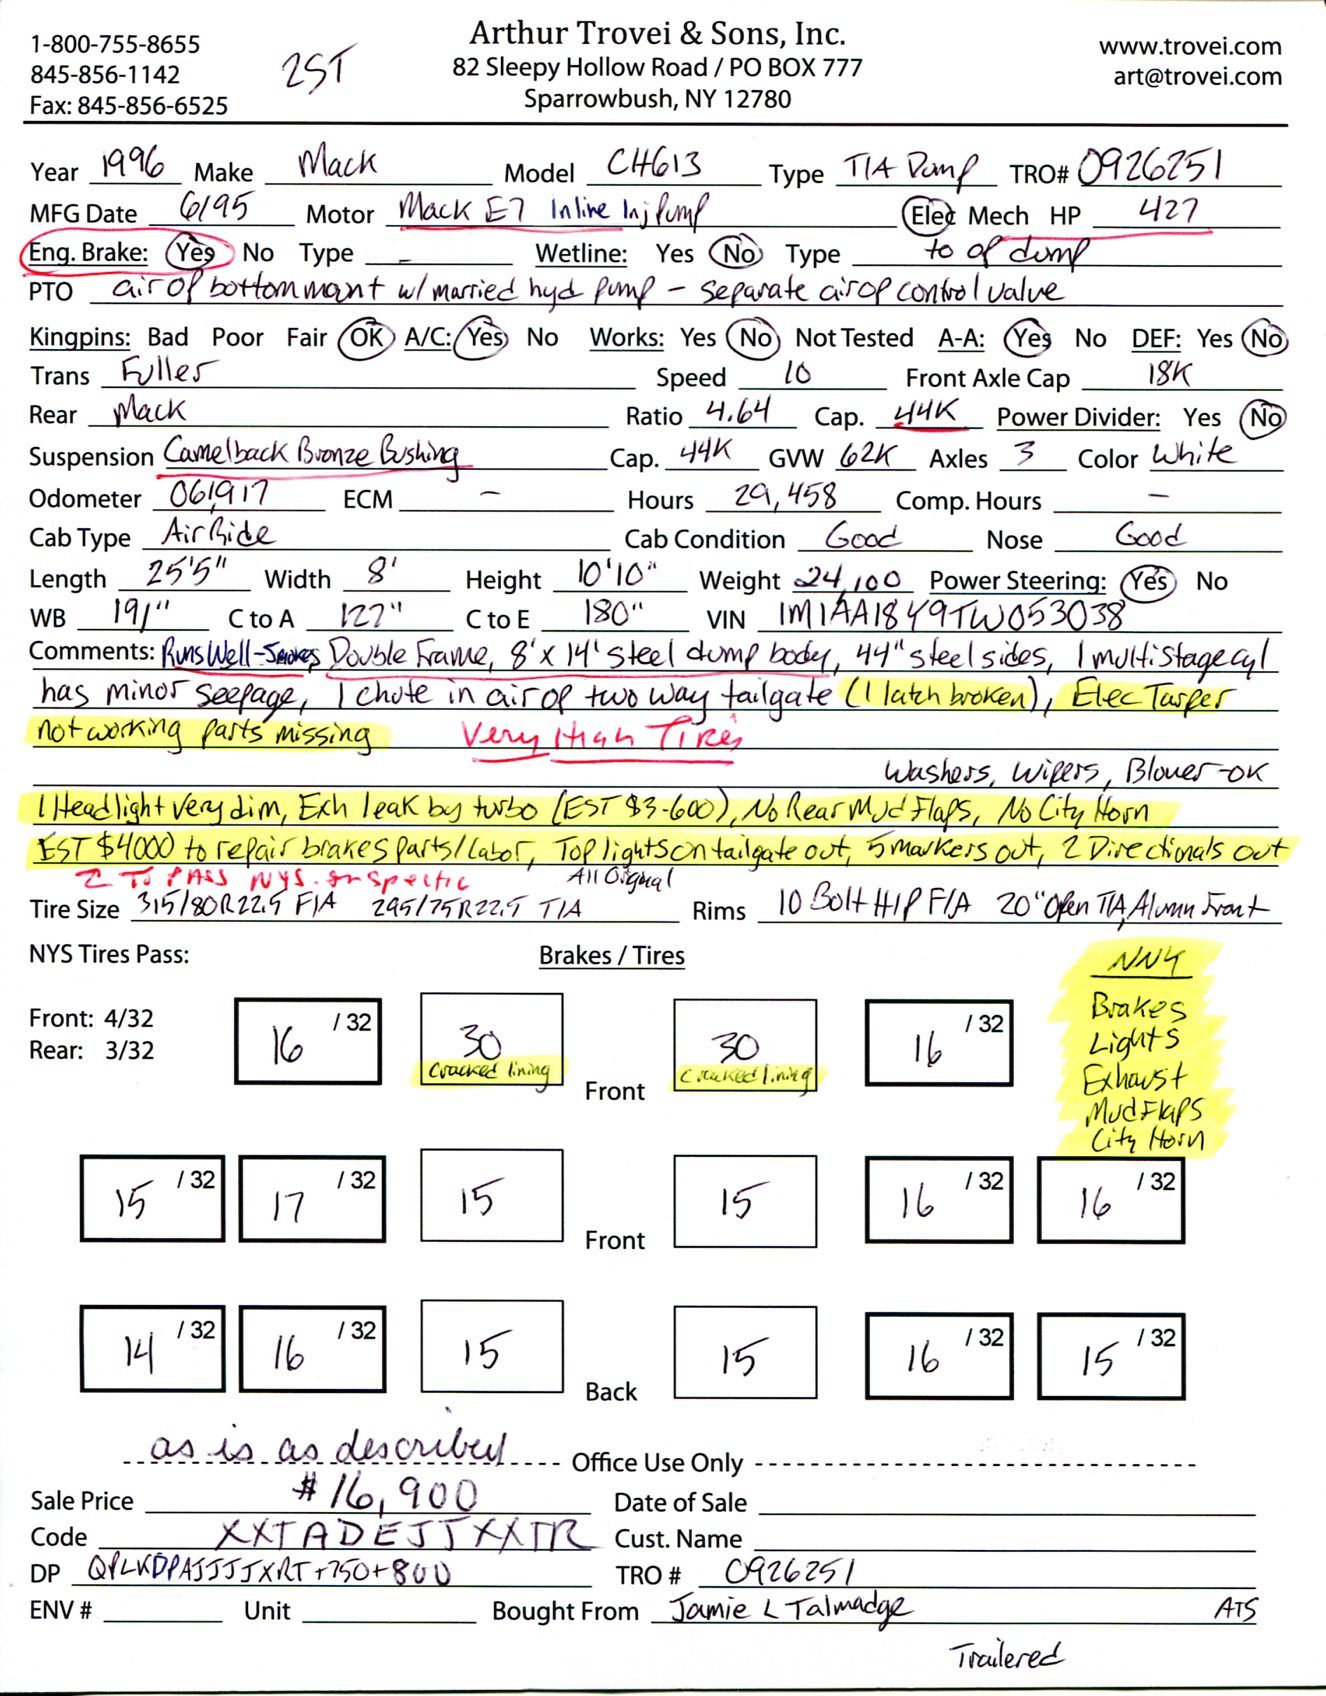 1-800-755-8655
845-856-1142
Fax: 845-856-6525
2ST
Arthur Trovei & Sons, Inc.
82 Sleepy Hollow Road / PO BOX 777
Sparrowbush, NY 12780
www.trovei.com
art@trovei.com
Year 1996 Make Mack Model CH613 Type T/A Dump TRO# 0926251
MFG Date 6/95 Motor Mack E7 Inline Inj Pump Elec Mech HP 427
Eng. Brake: Yes No Type - Wetline: Yes No Type to op dump
PTO air op bottom mount w/ married hyd pump - separate air op control valve
Kingpins: Bad Poor Fair OK A/C: Yes No Works: Yes No Not Tested A-A: Yes No DEF: Yes No
Trans Fuller Speed 10 Front Axle Cap 18K
Rear Mack Ratio 4.64 Cap. 44K Power Divider: Yes No
Suspension Camelback Bronze Bushing Cap. 44K GVW 62K Axles 3 Color White
Odometer 061,917 ECM - Hours 29,458 Comp. Hours -
Cab Type Air Ride Cab Condition Good Nose Good
Length 25'5" Width 8' Height 10'10" Weight 24,100 Power Steering: Yes No
WB 191" C to A 127" C to E 180" VIN 1M1AA18Y9TW053038
Comments: Runs Well-Smokes, Double Frame, 8' x 14' steel dump body, 44" steel sides, 1 multistage cyl
has minor seepage, 1 chute in air op two way tailgate (1 latch broken), Elec Tarper
not working parts missing Very High Tires
Washers, Wipers, Blower-OK
1 Headlight very dim, Exh leak by turbo (EST $3-600), No Rear Mud Flaps, No City Horn
EST $4000 to repair brakes parts/labor, Top lights on tailgate out, 5 markers out, 2 Directionals out
To PASS NYS. Inspectic All Orignal
Tire Size 315/80R22.5 F/A 295/75R22.5 T/A Rims 10 Bolt H/P F/A 20" Open T/A, Alumn Front
NYS Tires Pass: Brakes / Tires
Front: 4/32
Rear: 3/32
NNY
Brakes
Lights
Exhaust
Mud Flaps
City Horn
16 /32 30 cracked lining Front 30 cracked lining 16 /32
15 /32 17 /32 15 Front 15 16 /32 16 /32
14 /32 16 /32 15 Back 15 16 /32 15 /32
as is as described Office Use Only
Sale Price $16,900 Date of Sale
Code XXTADEJJXXTR Cust. Name
DP QPLKDPAJJJJXRT+750+800 TRO # 0926251
ENV # Unit Bought From Jamie L Talmadge ATS
Trailered